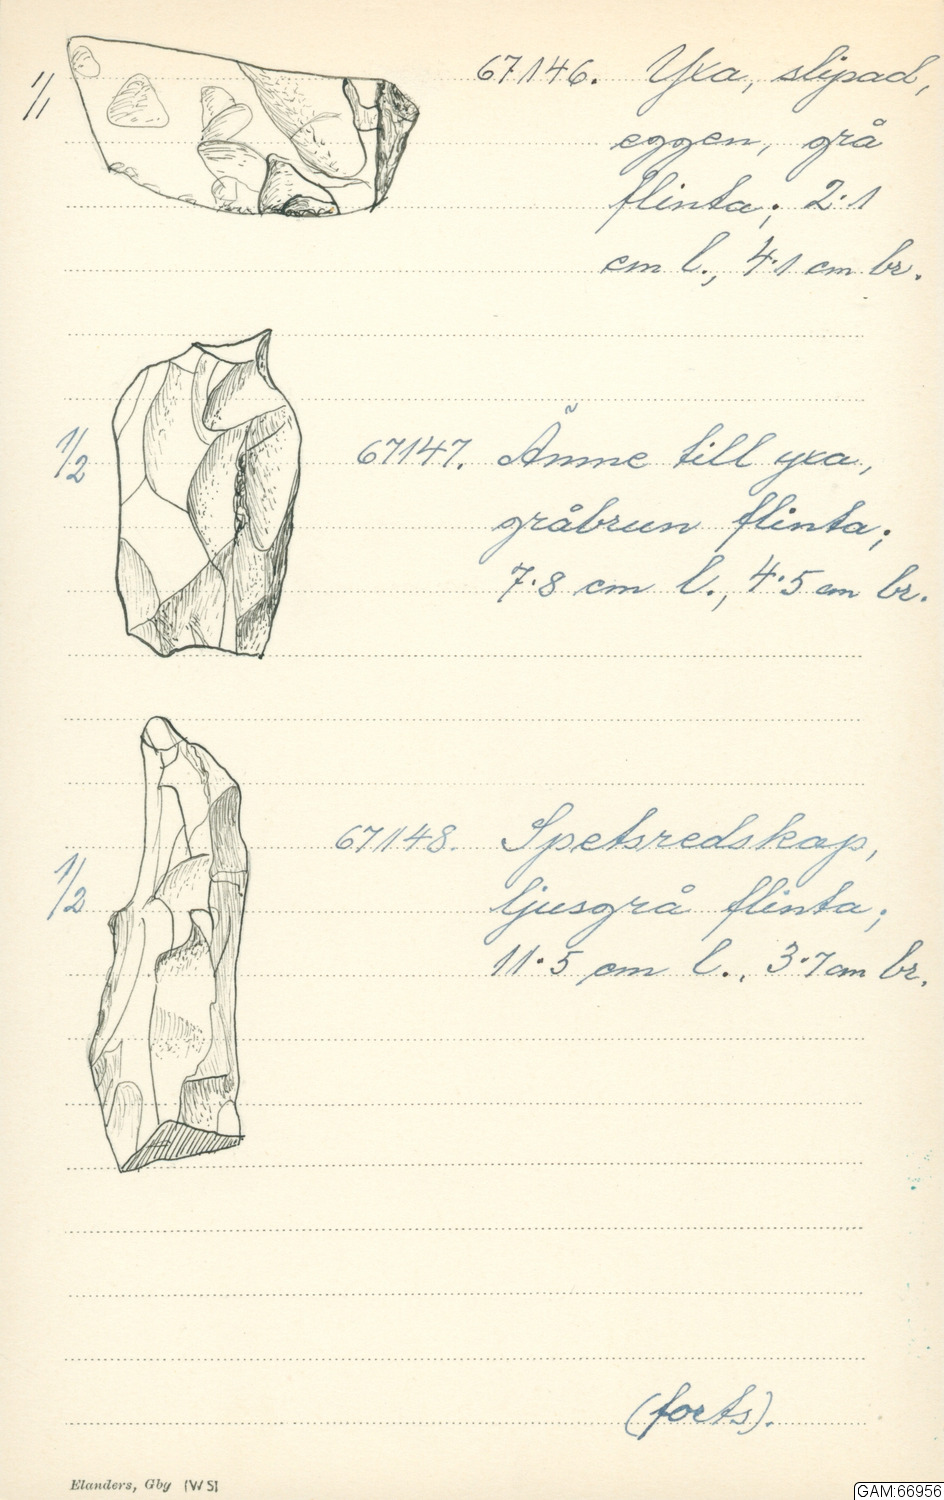 1/1
67146. Yxa, slipad,
eggen, grå
flinta; 2·1
cm l., 4·1 cm br.
1/2
67147. Ämne till yxa,
gråbrun flinta;
7·8 cm l., 4·5 cm br.
1/2
67148. Spetsredskap,
ljusgrå flinta;
11·5 cm l., 3·7 cm br.
(forts).
Elanders, Gby (WS)
GAM:66956